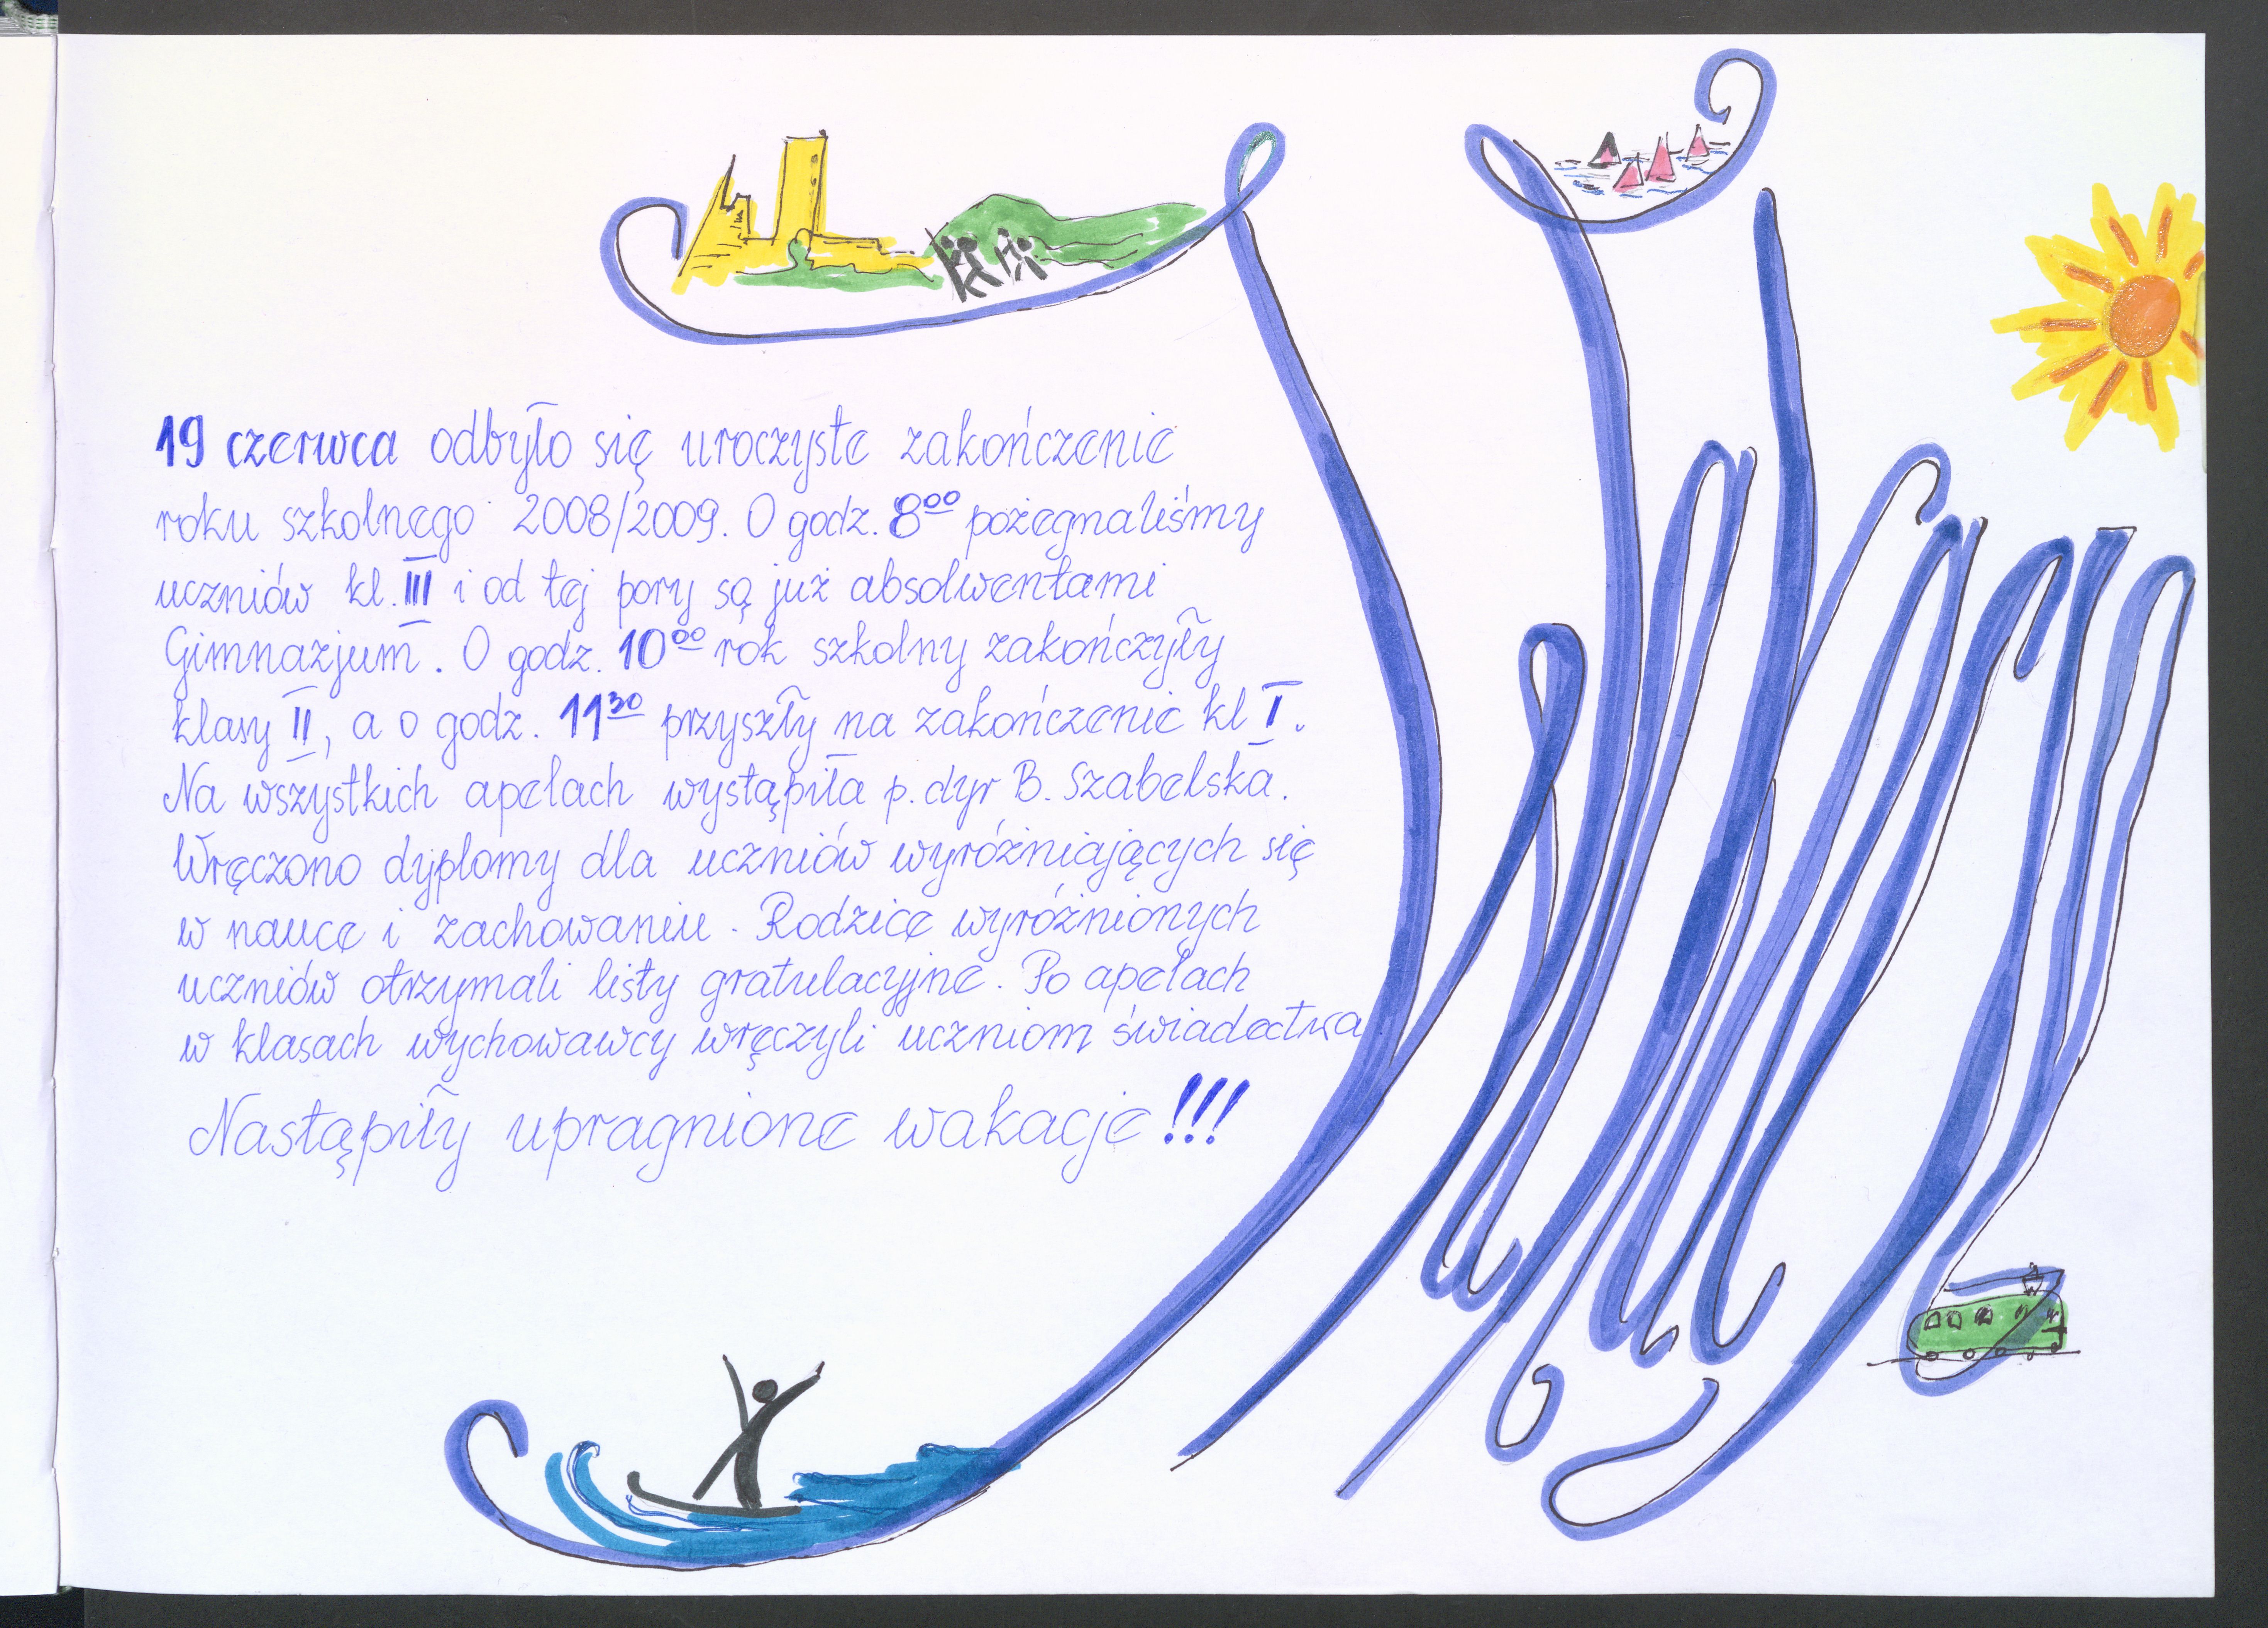 19 czerwca odbyło się uroczyste zakończenie
roku szkolnego 2008/2009. O godz. 8⁰⁰ pożegnaliśmy
uczniów kl. III i od tej pory są już absolwentami
Gimnazjum. O godz. 10⁰⁰ rok szkolny zakończyły
klasy II, a o godz. 11³⁰ przyszły na zakończenie kl I.
Na wszystkich apelach wystąpiła p. dyr B. Szabelska.
Wręczono dyplomy dla uczniów wyróżniających się
w nauce i zachowaniu. Rodzice wyróżnionych
uczniów otrzymali listy gratulacyjne. Po apelach
w klasach wychowawcy wręczyli uczniom świadectwa.
Nastąpiły upragnione wakacje!!!